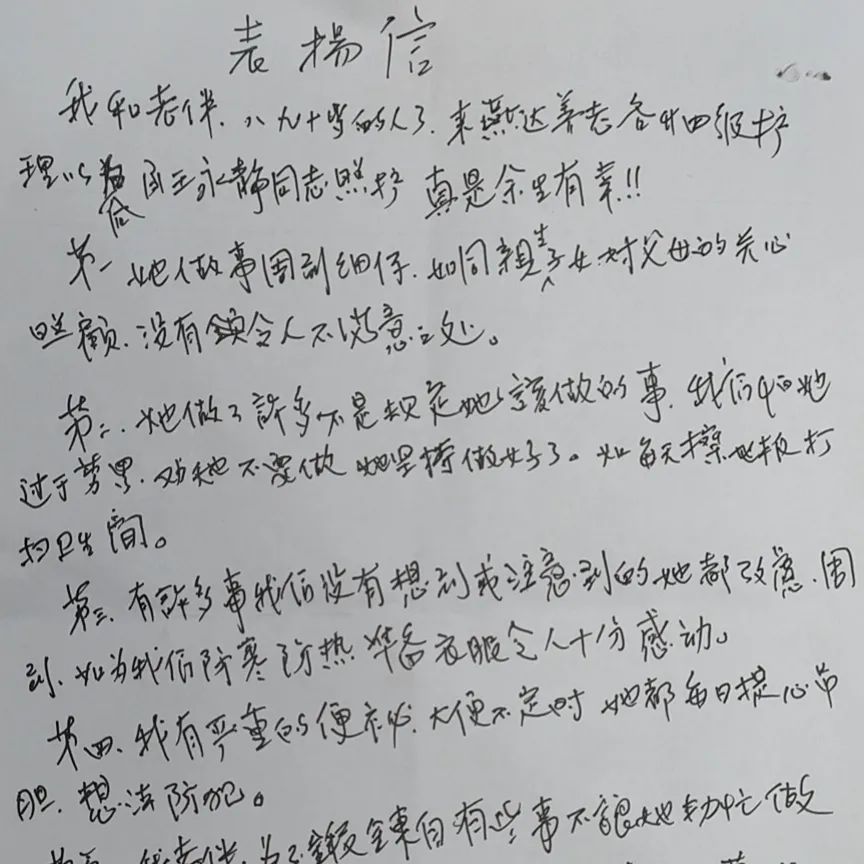 表揚信
我和老伴、八九十岁的人了、来燕达养老各升四级护
理以后 由王永静同志照护 真是余生有幸!!
第一 她做事周到细仔、如同親生子女对父母的关心
照顾、没有令人不满意之处。
第二、她做了許多不是规定她該做的事、我们怕她
过于劳累、劝她不要做 她坚持做好了。如每天擦地板打
扫卫生間。
第三、有許多事我们没有想到或注意到的她都改意、周
到、如为我们防寒防热 准备衣服令人十分感动。
第四、我有严重的便祕、大便不定时 她都每日提心吊
胆、想法防犯。
我老伴、为了鍛鍊自 有些事不讓她动忙做